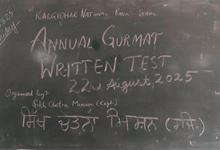 KALGIDHAR NATIONAL PUBLIC SCHOOL
ANNUAL GURMAT
WRITTEN TEST
22nd August, 2025
Organised by:
Sikh Chetna Mission (Regd.)
ਸਿੱਖ ਚੇਤਨਾ ਮਿਸ਼ਨ (ਰਜਿ:)